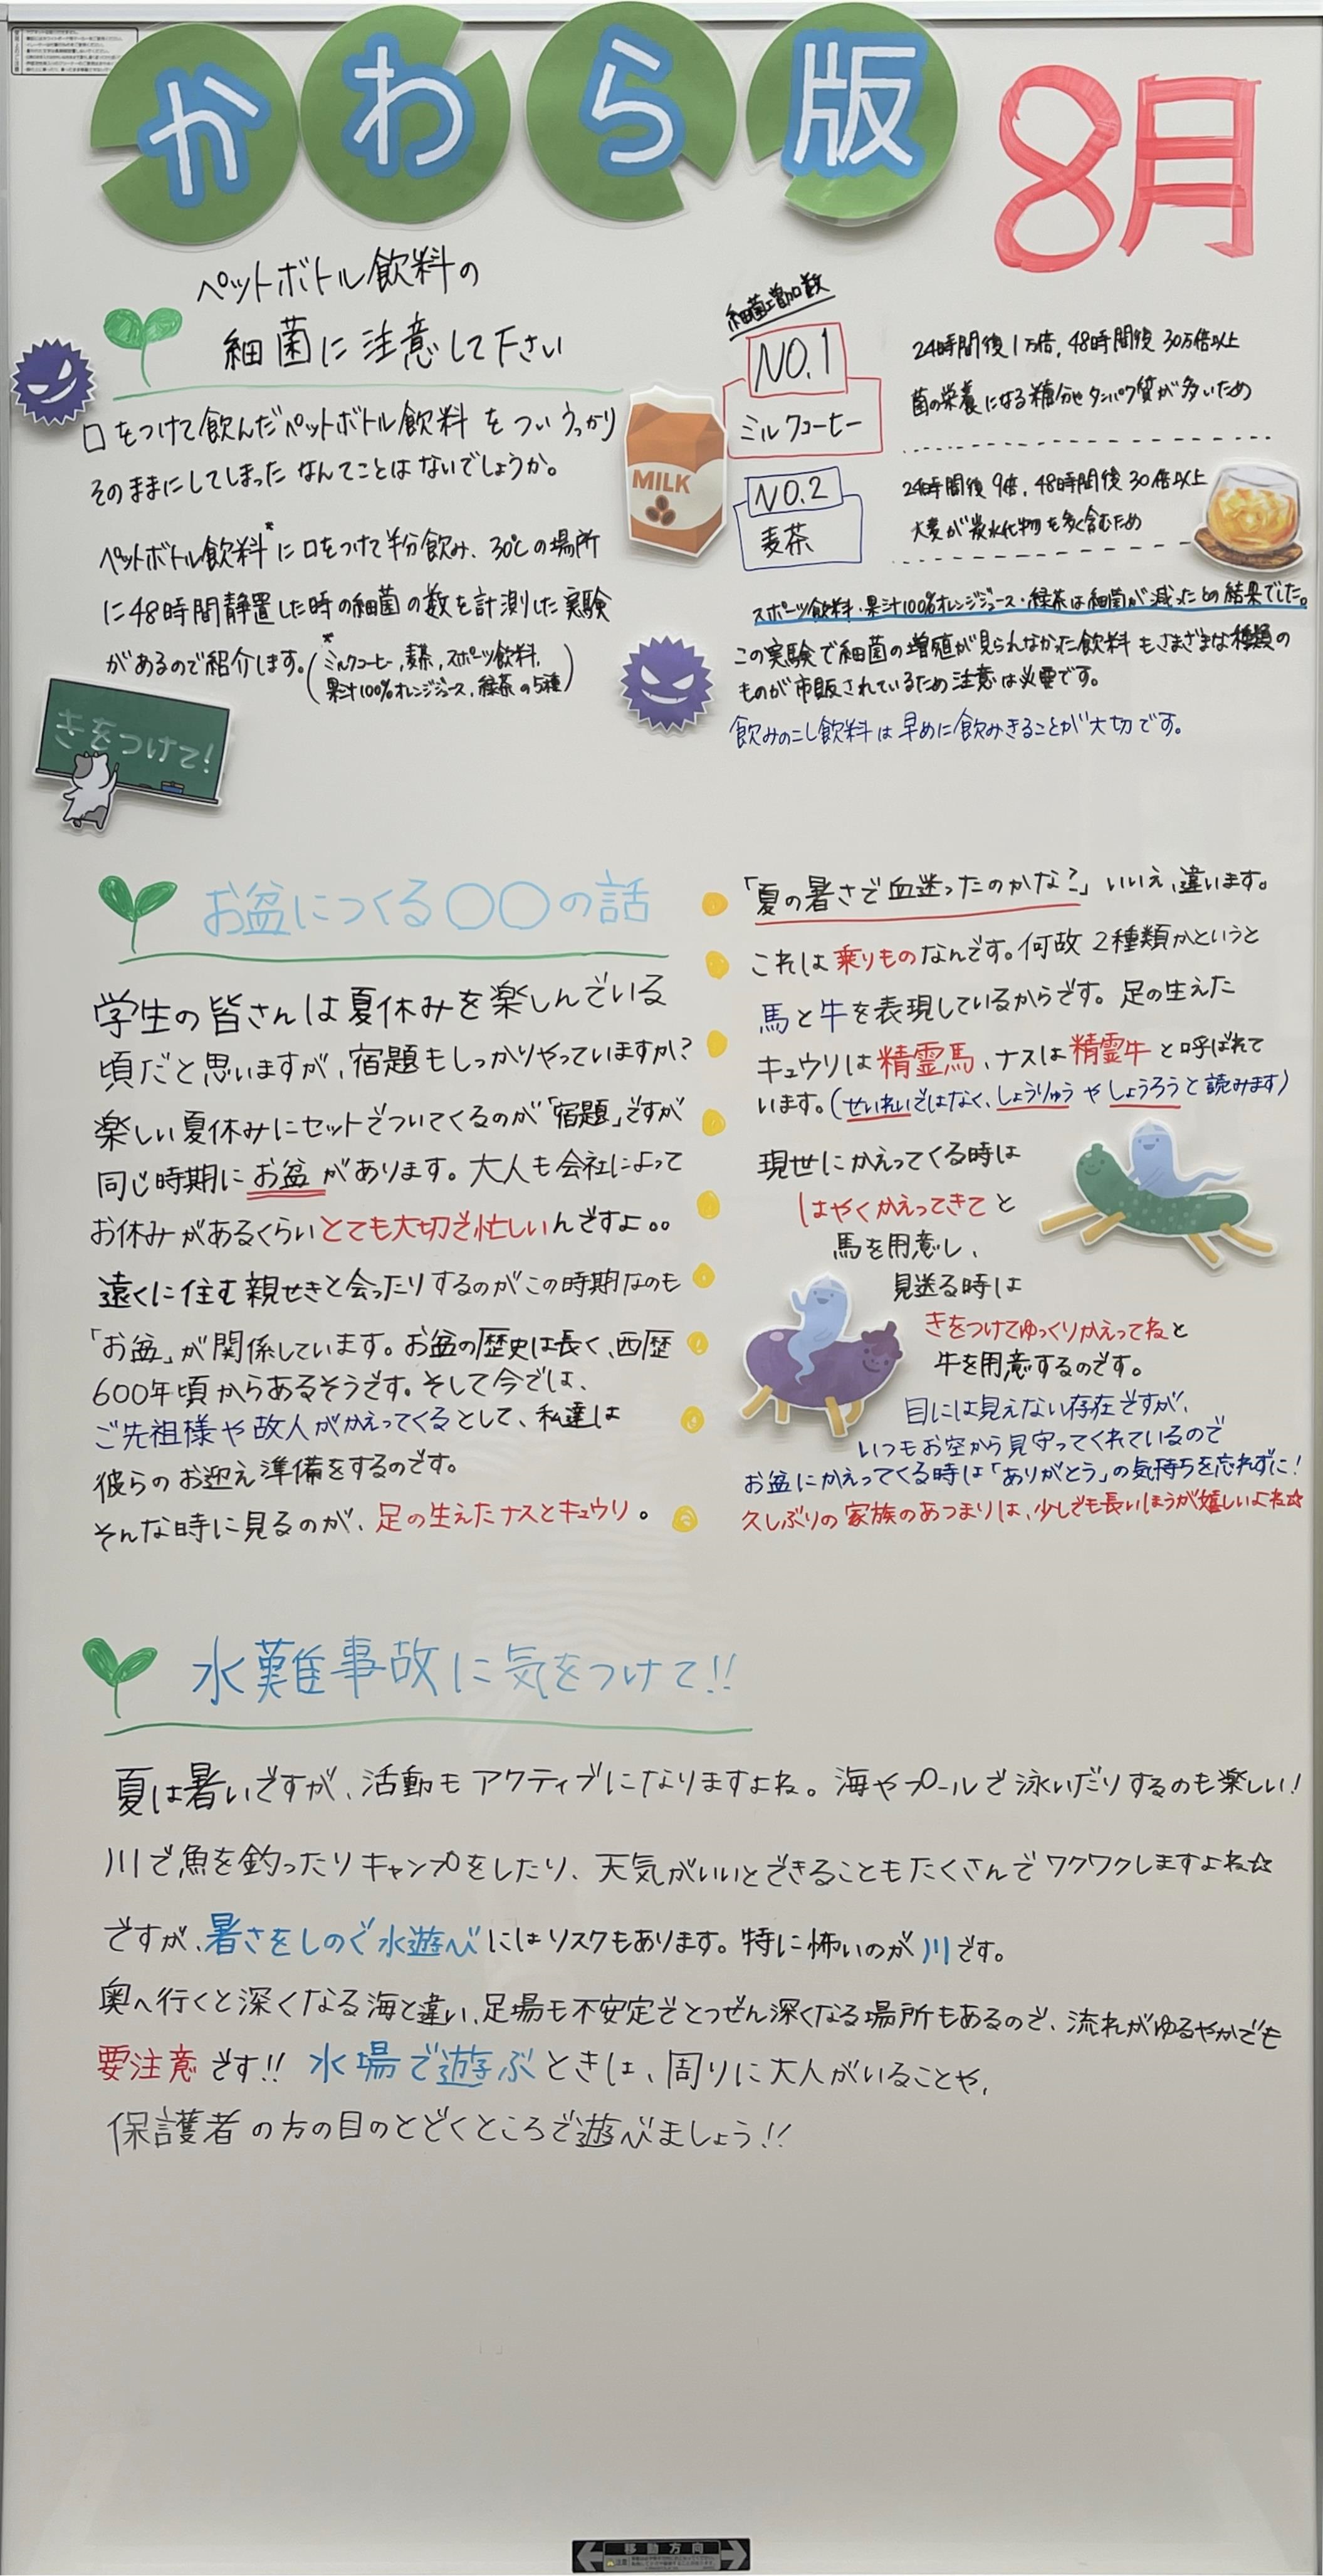 かわら版 8月
ペットボトル飲料の
細菌に注意して下さい
口をつけて飲んだペットボトル飲料をついうっかり
そのままにしてしまったなんてことはないでしょうか。
ペットボトル飲料*に口をつけて半分飲み、30℃の場所
に48時間静置した時の細菌の数を計測した実験
があるので紹介します。
(*ミルクコーヒー,麦茶,スポーツ飲料,
果汁100%オレンジジュース,緑茶の5種)
きをつけて!
MILK
細菌増加数
NO.1
ミルクコーヒー
24時間後1万倍,48時間後30万倍以上
菌の栄養になる糖分やタンパク質が多いため
NO.2
麦茶
24時間後9倍,48時間後30倍以上
大麦が炭水化物を多く含むため
スポーツ飲料・果汁100%オレンジジュース・緑茶は細菌が減ったとの結果でした。
この実験で細菌の増殖が見られなかった飲料もさまざまな種類の
ものが市販されているため注意は必要です。
飲みのこし飲料は早めに飲みきることが大切です。
お盆につくる〇〇の話
学生の皆さんは夏休みを楽しんでいる
頃だと思いますが、宿題もしっかりやっていますか?
楽しい夏休みにセットでついてくるのが「宿題」ですが
同じ時期にお盆があります。大人も会社によって
お休みがあるくらいとても大切で忙しいんですよ。。
遠くに住む親せきと会ったりするのがこの時期なのも
「お盆」が関係しています。お盆の歴史は長く、西歴
600年頃からあるそうです。そして今では、
ご先祖様や故人がかえってくるとして、私達は
彼らのお迎え準備をするのです。
そんな時に見るのが、足の生えたナスとキュウリ。
「夏の暑さで血迷ったのかな?」いいえ、違います。
これは乗りものなんです。何故2種類かというと
馬と牛を表現しているからです。足の生えた
キュウリは精霊馬、ナスは精霊牛と呼ばれて
います。(せいれいではなく、しょうりゅうやしょうろうと読みます)
現世にかえってくる時は
はやくかえってきてと
馬を用意し、
見送る時は
きをつけてゆっくりかえってねと
牛を用意するのです。
目には見えない存在ですが、
いつもお空から見守ってくれているので
お盆にかえってくる時は「ありがとう」の気持ちを忘れずに!
久しぶりの家族のあつまりは、少しでも長いほうが嬉しいよね☆
水難事故に気をつけて!!
夏は暑いですが、活動もアクティブになりますよね。海やプールで泳いだりするのも楽しい!
川で魚を釣ったりキャンプをしたり、天気がいいとできることもたくさんでワクワクしますよね☆
ですが、暑さをしのぐ水遊びにはリスクもあります。特に怖いのが川です。
奥へ行くと深くなる海と違い、足場も不安定でとつぜん深くなる場所もあるので、流れがゆるやかでも
要注意です!! 水場で遊ぶときは、周りに大人がいることや、
保護者の方の目のとどくところで遊びましょう!!
移動方向